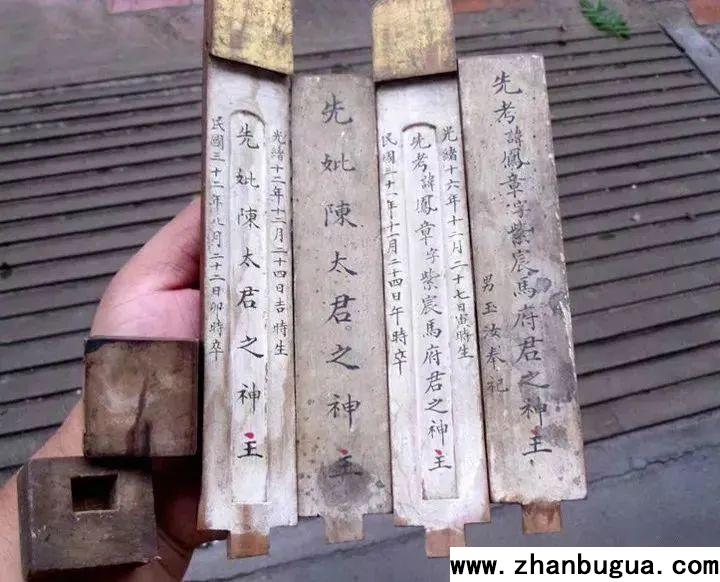 先考諱鳳章字紫宸馬府君之神主
男玉汝奉祀
光緒十六年十一月二十七日寅時生
先考諱鳳章字紫宸馬府君之神主
民國三十一年十一月二十四日午時卒
先妣陳太君之神主
光緒十二年十二月二十四日吉時生
先妣陳太君之神主
民國三十二年八月二十二日卯時卒
www.zhanbugua.com